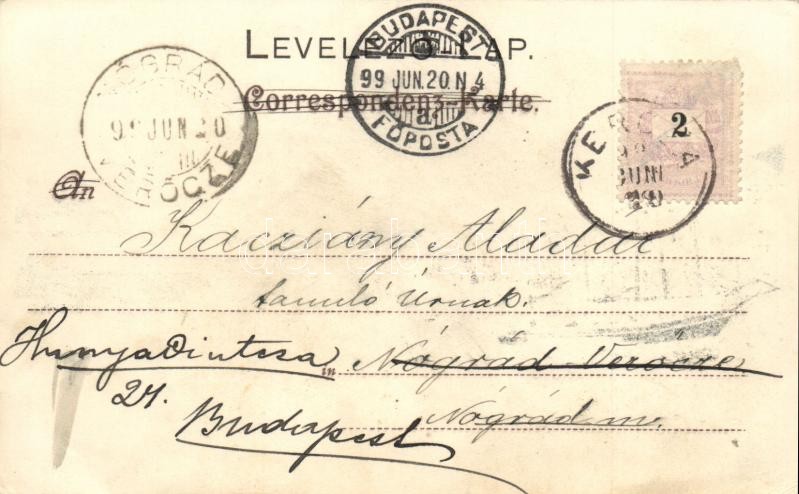 LEVELEZŐ-LAP.
Correspondenz-Karte.
BUDAPEST
99 JUN. 20. N 4
a.
FŐPOSTA
NÓGRÁD
99 JUN 20
VERŐCZE
KER
JUN
2
An
Kacziány Aladár
tanuló Úrnak.
Hunyadi utcza in Nógrád Verőcze
21. Nógrád m.
Budapest